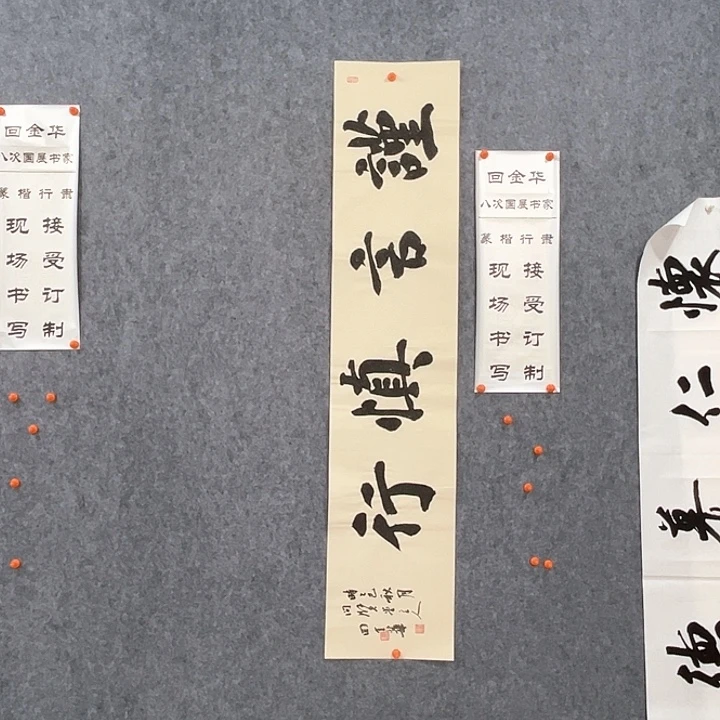 回金华
八次国展书家
篆楷行隶
现场书写
接受订制
謹言慎行
回金华
八次国展书家
篆楷行隶
现场书写
接受订制
懷仁慕德